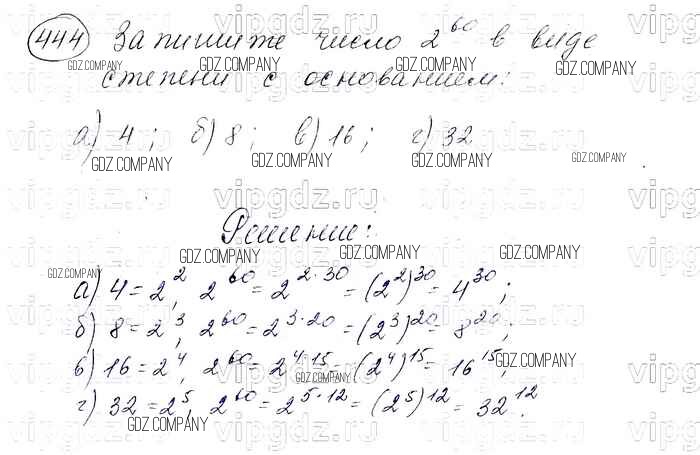 444 Запишите число 2^60 в виде
степени с основанием:
а) 4; б) 8; в) 16; г) 32
Решение:
а) 4 = 2^2, 2^60 = 2^{2·30} = (2^2)^30 = 4^30;
б) 8 = 2^3, 2^60 = 2^{3·20} = (2^3)^20 = 8^20;
в) 16 = 2^4, 2^60 = 2^{4·15} = (2^4)^15 = 16^15;
г) 32 = 2^5, 2^60 = 2^{5·12} = (2^5)^12 = 32^12.
GDZ.COMPANY
vipgdz.ru